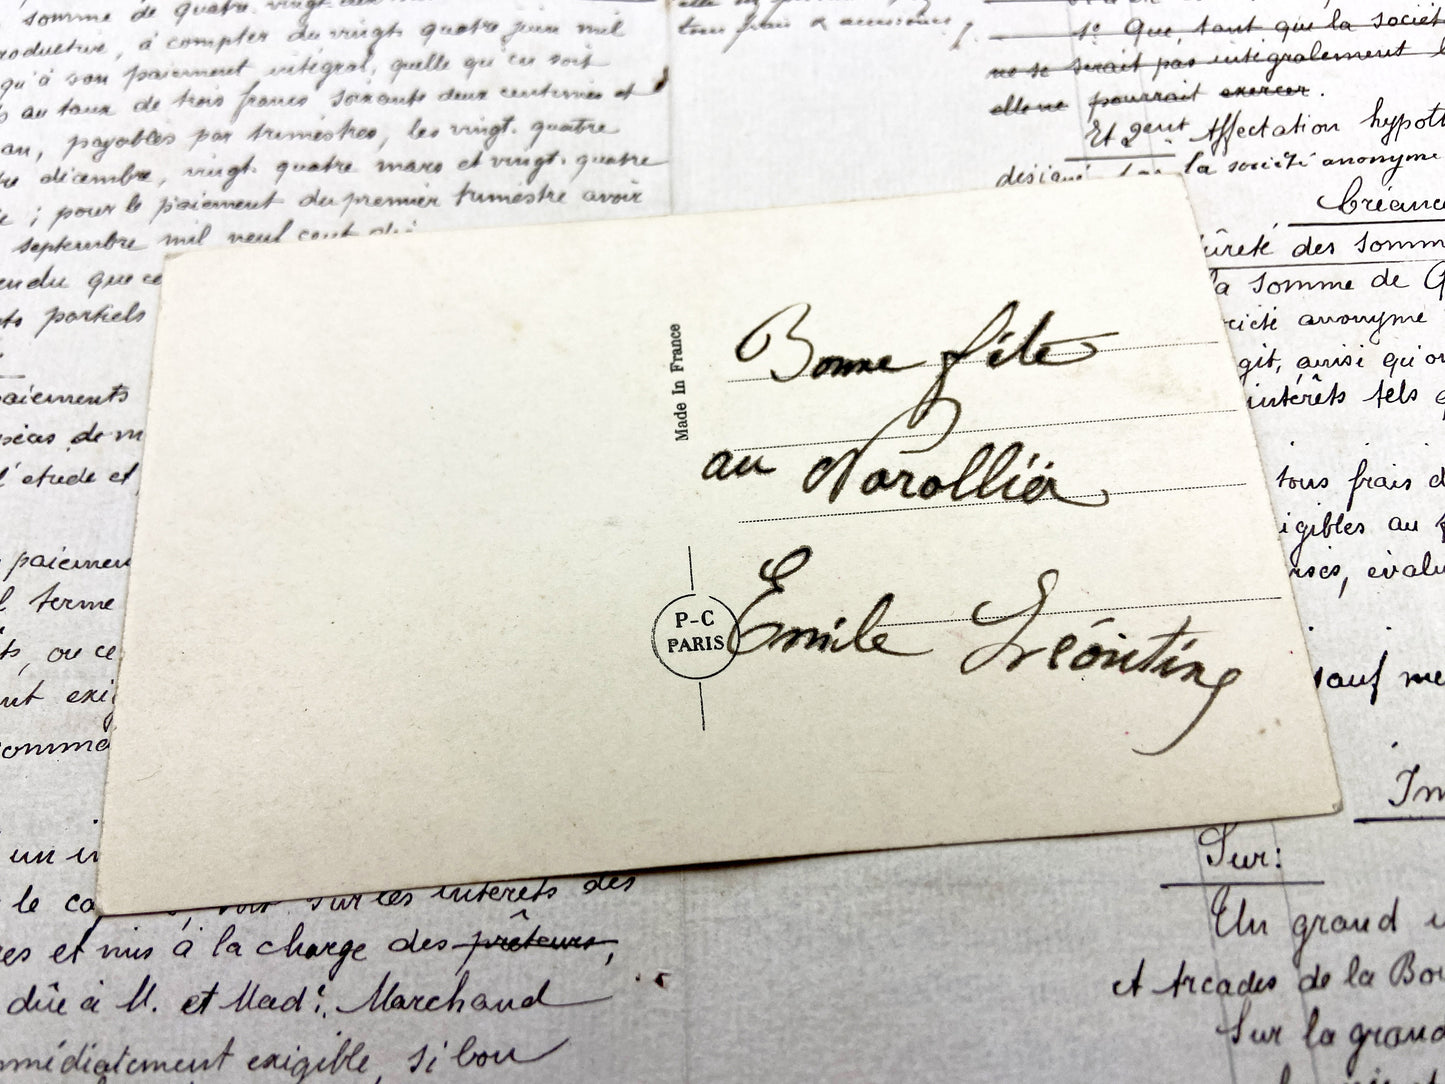 somme de quatre vingt
roductive, à compter du vingt quatre juin mil
qu'à son paiement intégral, quelle qu'en soit
s au taux de trois francs soixante deux centimes et
an, payables par trimestres, les vingt quatre
re décembre, vingt quatre mars et vingt quatre
; pour le paiement du premier trimestre avoir
septembre mil neuf cent
endu que ce
ts partiels
paiements
de m
l'étude et
paiemen
l terme
ts, ou ce
nt exig
somme
un in
le ca sur les intérêts des
res et mis à la charge des prêteurs,
dûe à M. et Mad. Marchand
mmédiatement exigible, si bon
tous frais & accessoires,
1º Que, tant que la sociét
ne se serait pas intégralement l
elle ne pourrait exercer.
Et 2ent Affectation hypoth
désigné la société anonyme
Créance
ûreté des somm
la somme de G
ciété anonyme
git, ainsi qu'on
intérêts tels q
tous frais d
igibles au
rses, évalu
sauf me
Im
Sur:
Un grand
et Arcades de la Bou
Sur la grand
Made In France
Bonne fête
au
P-C
PARIS
Emile Léontine